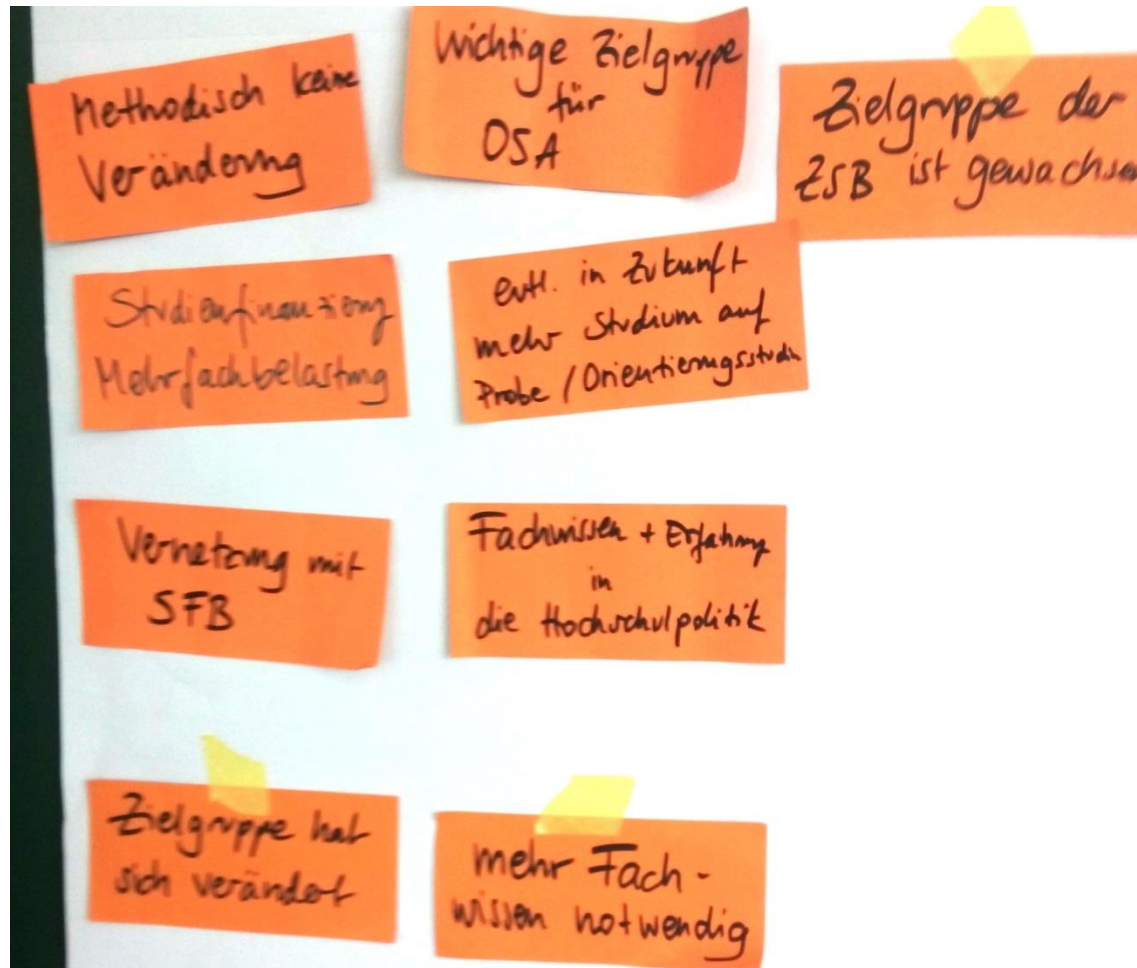 Methodisch keine
Veränderung
Wichtige Zielgruppe
für
OSA
Zielgruppe der
ZSB ist gewachsen
Studienfinanzierung
Mehrfachbelastung
evtl. in Zukunft
mehr Studium auf
Probe / Orientierungsstudium
Vernetzung mit
SFB
Fachwissen + Erfahrung
in
die Hochschulpolitik
Zielgruppe hat
sich verändert
mehr Fach-
wissen notwendig